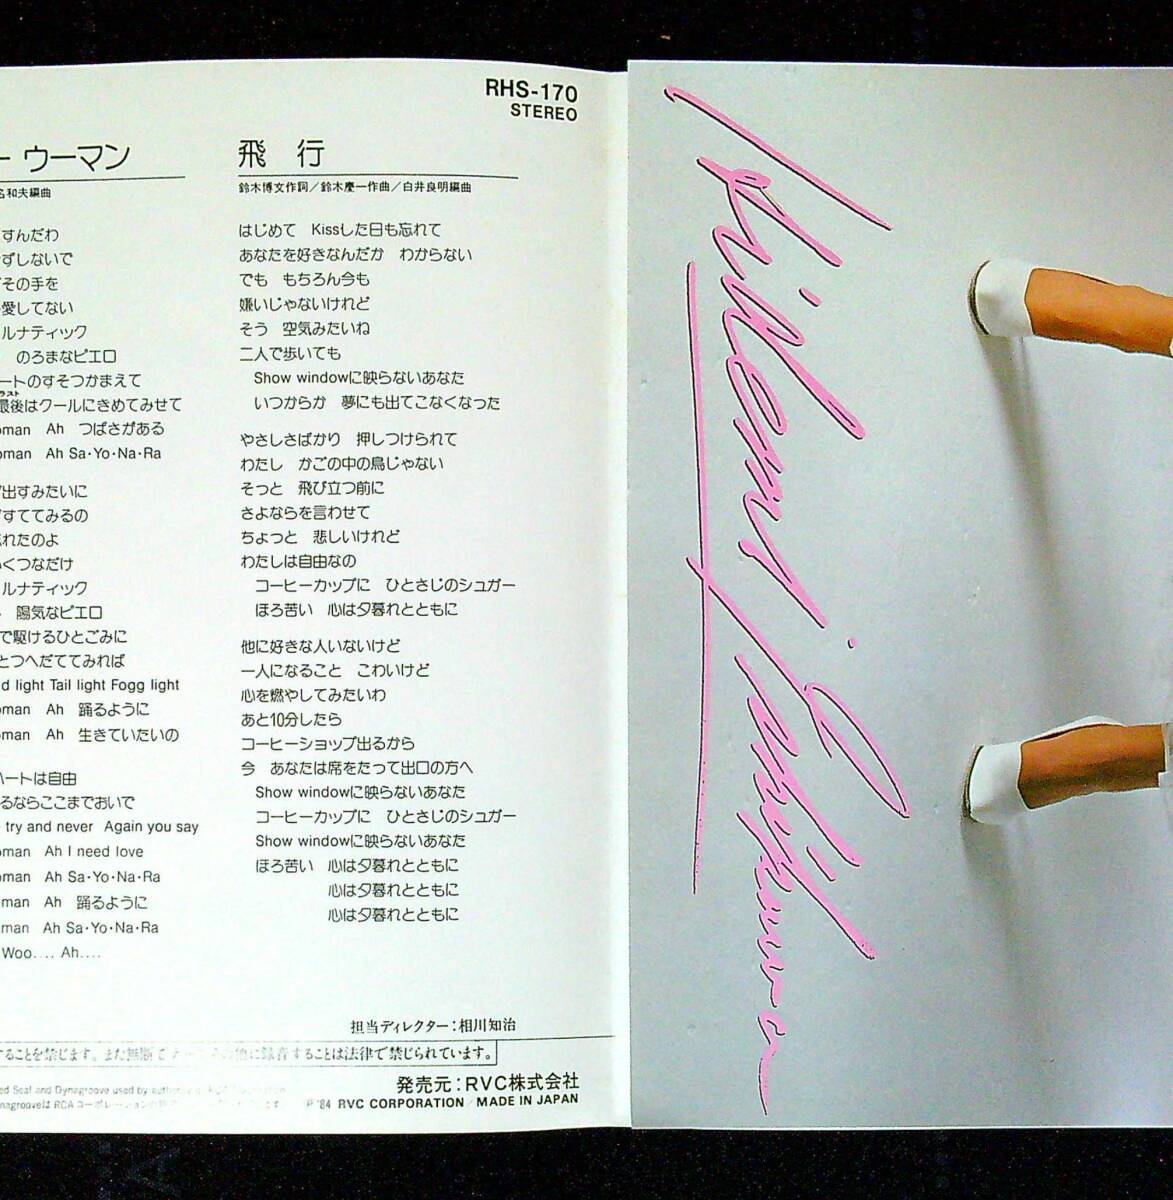 RHS-170
STEREO
ー ウーマン
名和夫編曲
すんだわ
ずしないで
その手を
愛してない
ルナティック
のろまなピエロ
ートのすそつかまえて
ラスト
最後はクールにきめてみせて
oman Ah つばさがある
oman Ah Sa・Yo・Na・Ra
出すみたいに
すててみるの
れたのよ
くつなだけ
ルナティック
陽気なピエロ
で駆けるひとごみに
とつへだててみれば
d light Tail light Fogg light
oman Ah 踊るように
oman Ah 生きていたいの
ハートは自由
るならここまでおいで
try and never Again you say
oman Ah I need love
oman Ah Sa・Yo・Na・Ra
man Ah 踊るように
man Ah Sa・Yo・Na・Ra
Woo.... Ah....
飛 行
鈴木博文作詞/鈴木慶一作曲/白井良明編曲
はじめて Kissした日も忘れて
あなたを好きなんだか わからない
でも もちろん今も
嫌いじゃないけれど
そう 空気みたいね
二人で歩いても
Show windowに映らないあなた
いつからか 夢にも出てこなくなった
やさしさばかり 押しつけられて
わたし かごの中の鳥じゃない
そっと 飛び立つ前に
さよならを言わせて
ちょっと 悲しいけれど
わたしは自由なの
コーヒーカップに ひとさじのシュガー
ほろ苦い 心は夕暮れとともに
他に好きな人いないけど
一人になること こわいけど
心を燃やしてみたいわ
あと10分したら
コーヒーショップ出るから
今 あなたは席をたって出口の方へ
Show windowに映らないあなた
コーヒーカップに ひとさじのシュガー
Show windowに映らないあなた
ほろ苦い 心は夕暮れとともに
心は夕暮れとともに
心は夕暮れとともに
担当ディレクター:相川知治
することを禁じます。また無断で その他に録音することは法律で禁じられています。
発売元:RVC株式会社
ed Seal and Dynagroove used by
nagrooveはRCAコーポレーション
P '84 RVC CORPORATION/MADE IN JAPAN